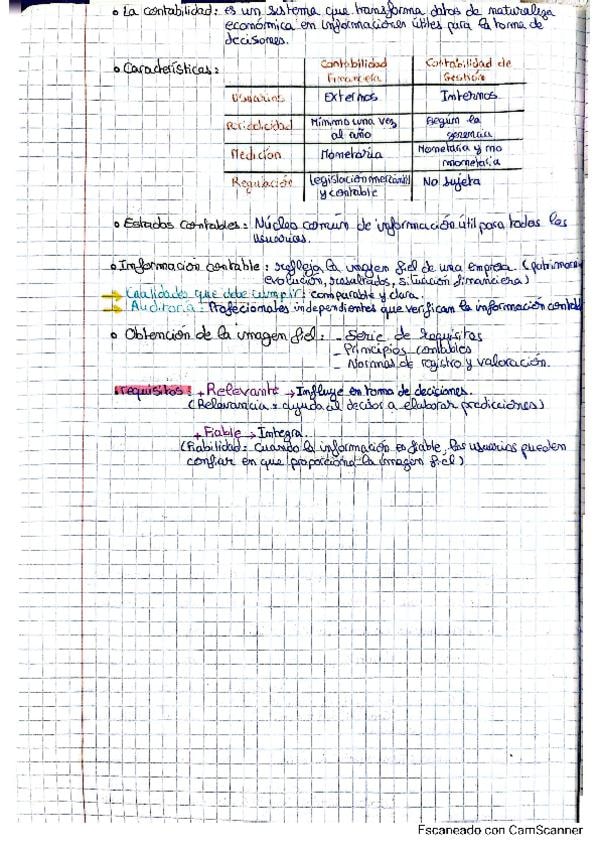 • La contabilidad: es un sistema que transforma datos de naturaleza
económica en informaciones útiles para la toma de
decisiones.
• Características:
Contabilidad Financiera | Contabilidad de Gestión
Usuarios | Externos | Internos
Periodicidad | Mínimo una vez al año | Según la gerencia
Medición | Monetaria | Monetaria y no monetaria
Regulación | legislación mercantil y contable | No sujeta
• Estados contables: Núcleo común de información útil para todos los
usuarios.
• Información contable: refleja la imagen fiel de una empresa. (patrimonio
evolución, resultados, situación financiera)
→ Cualidades que debe cumplir: comparable y clara.
→ Auditoría: Profesionales independientes que verifican la información contable
• Obtención de la imagen fiel: - Serie de requisitos
- Principios contables
- Normas de registro y valoración.
requisitos: + Relevante → Influye en toma de decisiones.
(Relevancia = ayuda al decisor a elaborar predicciones)
+ Fiable → Integra.
(Fiabilidad: Cuando la información es fiable, los usuarios pueden
confiar en que proporciona la imagen fiel)
Escaneado con CamScanner